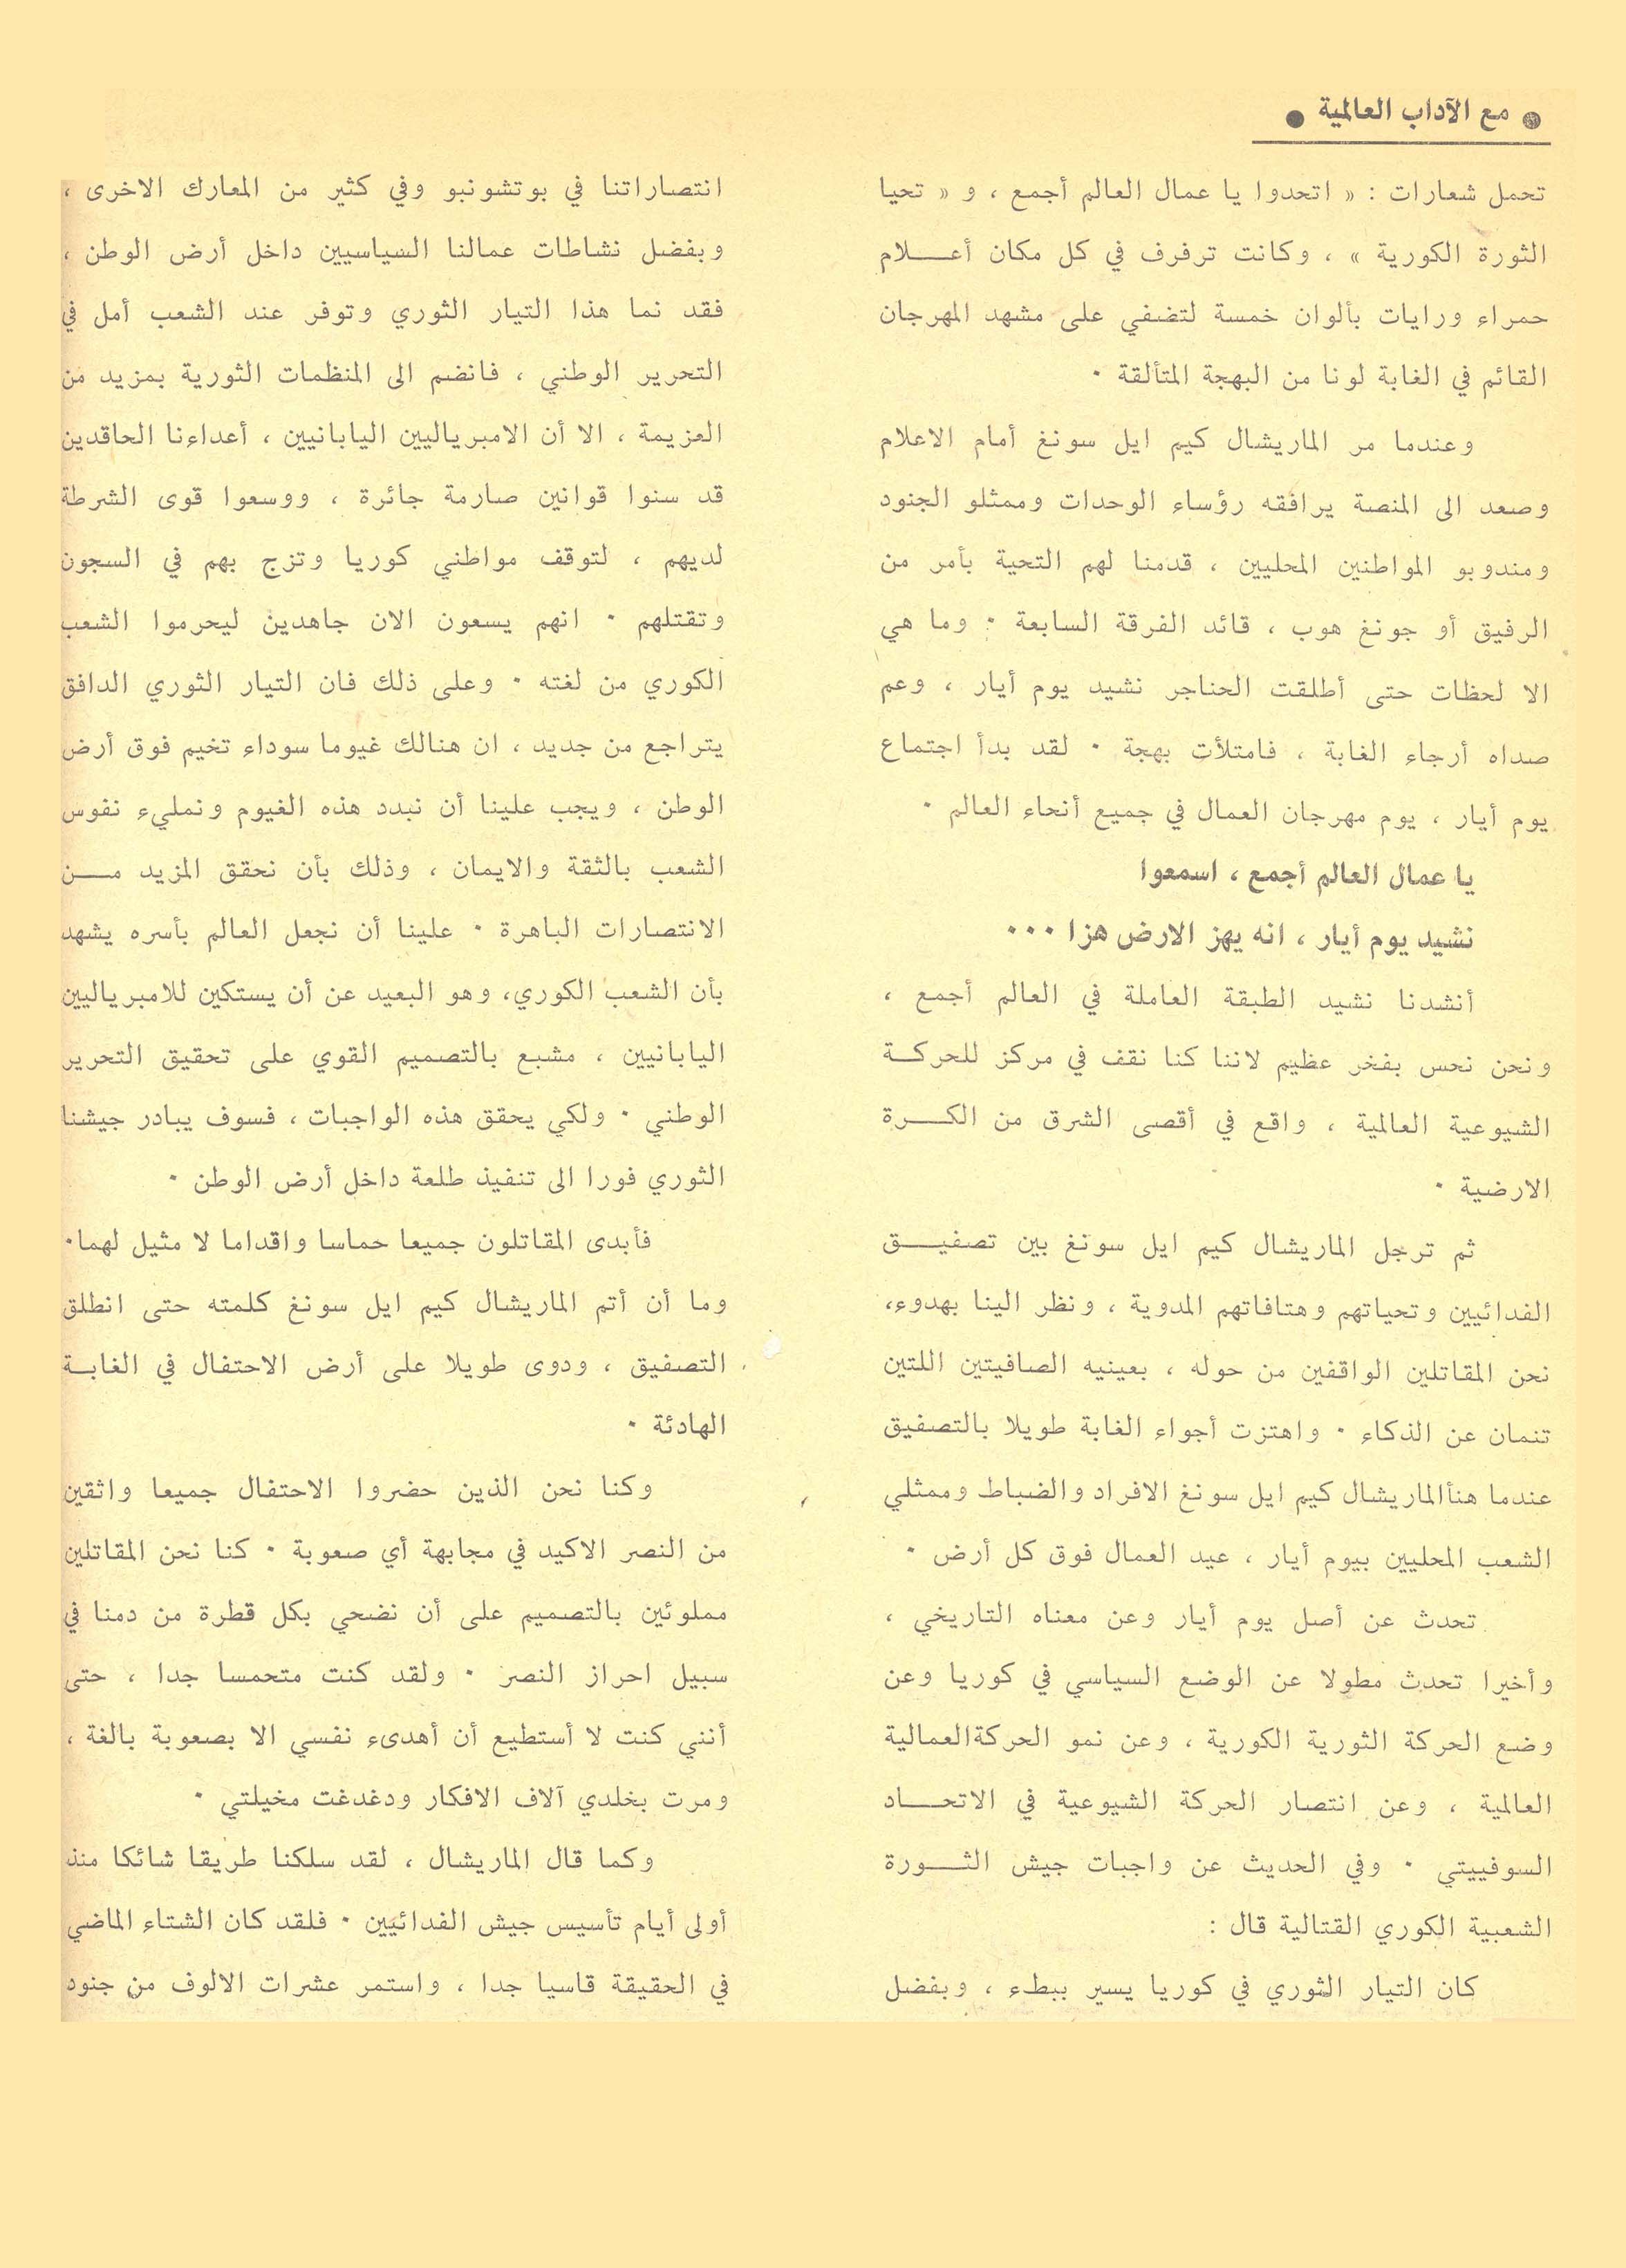 ● مع الآداب العالمية ●
تحمل شعارات : « اتحدوا يا عمال العالم أجمع ، و « تحيا
الثورة الكورية » ، وكانت ترفرف في كل مكان أعـــلام
حمراء ورايات بألوان خمسة لتضفي على مشهد المهرجان
القائم في الغابة لونا من البهجة المتألقة ٠
وعندما مر الماريشال كيم ايل سونغ أمام الاعلام
وصعد الى المنصة يرافقه رؤساء الوحدات وممثلو الجنود
ومندوبو المواطنين المحليين ، قدمنا لهم التحية بأمر من
الرفيق أو جونغ هوب ، قائد الفرقة السابعة ٠ وما هي
الا لحظات حتى أطلقت الحناجر نشيد يوم أيار ، وعم
صداه أرجاء الغابة ، فامتلأت بهجة ٠ لقد بدأ اجتماع
يوم أيار ، يوم مهرجان العمال في جميع أنحاء العالم ٠
يا عمال العالم أجمع ، اسمعوا
نشيد يوم أيار ، انه يهز الارض هزا ٠٠٠
أنشدنا نشيد الطبقة العاملة في العالم أجمع ،
ونحن نحس بفخر عظيم لاننا كنا نقف في مركز للحركــة
الشيوعية العالمية ، واقع في أقصى الشرق من الكـــرة
الارضية ٠
ثم ترجل الماريشال كيم ايل سونغ بين تصفيـــق
الفدائيين وتحياتهم وهتافاتهم المدوية ، ونظر الينا بهدوء،
نحن المقاتلين الواقفين من حوله ، بعينيه الصافيتين اللتين
تنمان عن الذكاء ٠ واهتزت أجواء الغابة طويلا بالتصفيق
عندما هنأالماريشال كيم ايل سونغ الافراد والضباط وممثلي
الشعب المحليين بيوم أيار ، عيد العمال فوق كل أرض ٠
تحدث عن أصل يوم أيار وعن معناه التاريخي ،
وأخيرا تحدث مطولا عن الوضع السياسي في كوريا وعن
وضع الحركة الثورية الكورية ، وعن نمو الحركةالعمالية
العالمية ، وعن انتصار الحركة الشيوعية في الاتحـــاد
السوفييتي ٠ وفي الحديث عن واجبات جيش الثـــورة
الشعبية الكوري القتالية قال :
كان التيار الثوري في كوريا يسير ببطء ، وبفضل
انتصاراتنا في بوتشونبو وفي كثير من المعارك الاخرى ،
وبفضل نشاطات عمالنا السياسيين داخل أرض الوطن ،
فقد نما هذا التيار الثوري وتوفر عند الشعب أمل في
التحرير الوطني ، فانضم الى المنظمات الثورية بمزيد من
العزيمة ، الا أن الامبرياليين اليابانيين ، أعداءنا الحاقدين
قد سنوا قوانين صارمة جائرة ، ووسعوا قوى الشرطة
لديهم ، لتوقف مواطني كوريا وتزج بهم في السجون
وتقتلهم ٠ انهم يسعون الان جاهدين ليحرموا الشعب
الكوري من لغته ٠ وعلى ذلك فان التيار الثوري الدافق
يتراجع من جديد ، ان هنالك غيوما سوداء تخيم فوق أرض
الوطن ، ويجب علينا أن نبدد هذه الغيوم ونمليء نفوس
الشعب بالثقة والايمان ، وذلك بأن نحقق المزيد مـــن
الانتصارات الباهرة ٠ علينا أن نجعل العالم بأسره يشهد
بأن الشعب الكوري، وهو البعيد عن أن يستكين للامبرياليين
اليابانيين ، مشبع بالتصميم القوي على تحقيق التحرير
الوطني ٠ ولكي يحقق هذه الواجبات ، فسوف يبادر جيشنا
الثوري فورا الى تنفيذ طلعة داخل أرض الوطن ٠
فأبدى المقاتلون جميعا حماسا واقداما لا مثيل لهما٠
وما أن أتم الماريشال كيم ايل سونغ كلمته حتى انطلق
التصفيق ، ودوى طويلا على أرض الاحتفال في الغابــة
الهادئة ٠
وكنا نحن الذين حضروا الاحتفال جميعا واثقين
من النصر الاكيد في مجابهة أي صعوبة ٠ كنا نحن المقاتلين
مملوئين بالتصميم على أن نضحي بكل قطرة من دمنا في
سبيل احراز النصر ٠ ولقد كنت متحمسا جدا ، حتى
أنني كنت لا أستطيع أن أهدىء نفسي الا بصعوبة بالغة ،
ومرت بخلدي آلاف الافكار ودغدغت مخيلتي ٠
وكما قال الماريشال ، لقد سلكنا طريقا شائكا منذ
أولى أيام تأسيس جيش الفدائيين ٠ فلقد كان الشتاء الماضي
في الحقيقة قاسيا جدا ، واستمر عشرات الالوف من جنود